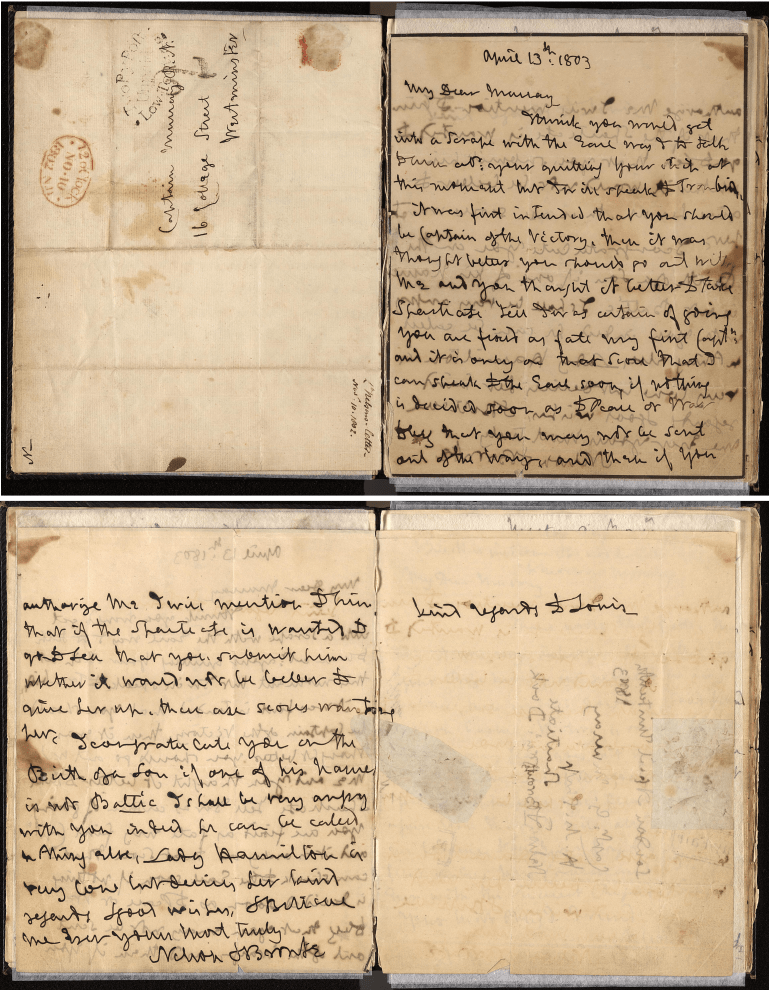 Two Py Post
12 o'Clock
NO. 10
1802 N.N
Captain Murray R.N.
16 College Street
Westminster
Ld. Nelsons letter
Nov. 10. 1802.
N
April 13th: 1803
My Dear Murray
I think you would get
into a scrape with the Earl was I to talk
to him abt: your quitting your ship at
this moment but I will speak to Troubridge
it was first intended that you should
be Captain of the Victory. then it was
thought better you should go out with
me and you thought it better to take
Spartiate till I was certain of going
you are fixed as fate my first Captn:
and it is only on that score that I
can speak to the Earl soon, if nothing
is decided soon as to Peace or War
I beg that you may not be sent
out of the way, and then if you
authorize me I will mention to him
that if the Spartiate is wanted to
go to sea that you submit him
whether it would not be better to
give her up. there are scores wanting
her. I congratulate you on the
Birth of a son if one of his names
is not Baltic I shall be very angry
with you indeed he can be called
nothing else, Lady Hamilton is
very low but desires her kind
regards & good wishes, & Believe
me Ever yours most truly
Nelson & Bronte
kind regards to Louis